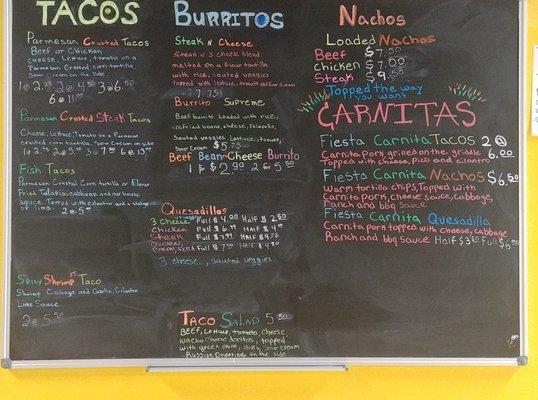 TACOS
Parmesan Crusted Tacos
Beef or Chicken
cheese, Lettuce, tomato on a
Parmesan Crusted corn tortilla,
Sour Cream on the side
1@2.25 2@4.50 3@6.50
6@11.00
Parmesan Crusted Steak Tacos
Cheese, Lettuce, Tomato on a Parmesan
crusted corn tortilla, Sour Cream on side
1@2.75 2@5.50 3@7.50 6@13.00
Fish Tacos
Parmesan Crusted Corn tortilla or Flour
Fried Talapia, cabbage and our house
sauce. Topped with cilantro and a
of lime. 2@5.50
Spicy Shrimp Taco
Shrimp Cabbage and Garlic, Cilantro
Lime Sauce
2@5.50
BURRITOS
Steak N Cheese
Steak n 3 cheese blend
melted on a flour tortilla
with rice, sauted veggies
Topped with Lettuce, tomato, Sour Cream
7.75
Burrito Supreme
Beef burrito Loaded with rice,
refried beans, cheese, Jalapeños,
Sauted veggies Lettuce, tomato,
Sour Cream $5.75
Beef Bean-Cheese Burrito
1 $2.90 2@5.50
Quesadillas
3 Cheese Full $4.00 Half $2.50
Chicken Full $6.99 Half $4.00
Steak Full $7.99 Half
Chicken, Full $7.50 Half $4.50
3 cheese, sauted veggies
TACO SALAD 5.50
BEEF, Lettuce, tomato, Cheese
Nacho Cheese Doritos, topped
with green onion, olives, Sour Cream
Russian Dressing on the side
Nachos
Loaded Nachos
Beef $7.50
Chicken $7.00
Steak $9.50
Topped the way
you want
CARNITAS
Fiesta Carnita TACOS 2@
Carnita pork grilled on the griddle 6.00
Topped with cheese, pico and cilantro
Fiesta Carnita Nachos $6.50
Warm tortilla chips, Topped with
Carnita pork, cheese sauce, cabbage,
Ranch and bbq sauce
Fiesta Carnita Quesadilla
Carnita pork topped with cheese, cabbage
Ranch and bbq sauce Half $3.50 Full $6.00